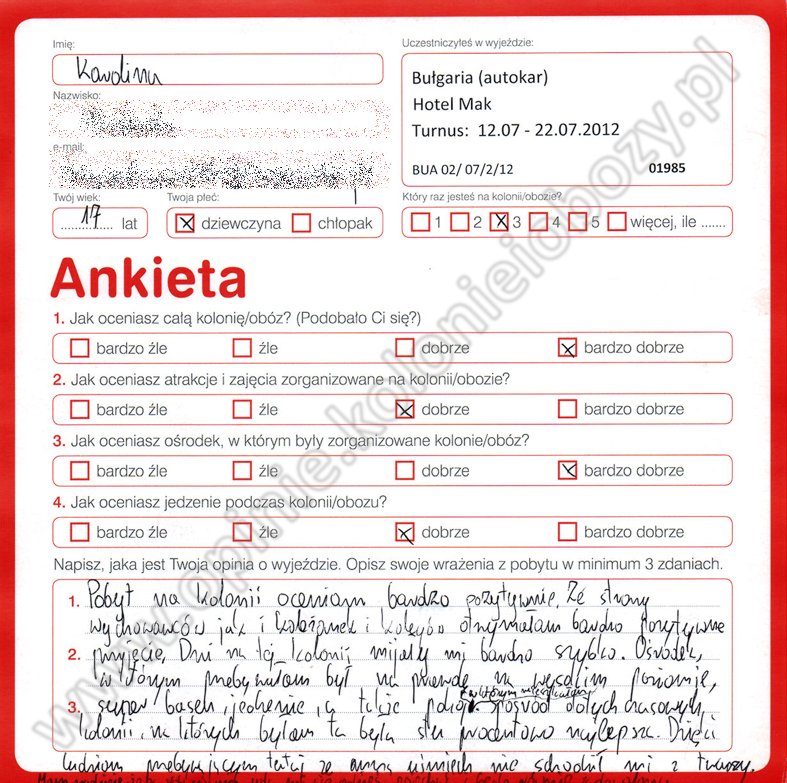 Imię:
Uczestniczyłeś w wyjeździe:
Karolina
Bułgaria (autokar)
Hotel Mak
Turnus: 12.07 - 22.07.2012
BUA 02/ 07/2/12 01985
Nazwisko:
e-mail:
Twój wiek: Twoja płeć: Który raz jesteś na kolonii/obozie?
17 lat dziewczyna chłopak 1 2 3 4 5 więcej, ile .......
Ankieta
1. Jak oceniasz całą kolonię/obóz? (Podobało Ci się?)
bardzo źle źle dobrze bardzo dobrze
2. Jak oceniasz atrakcje i zajęcia zorganizowane na kolonii/obozie?
bardzo źle źle dobrze bardzo dobrze
3. Jak oceniasz ośrodek, w którym były zorganizowane kolonie/obóz?
bardzo źle źle dobrze bardzo dobrze
4. Jak oceniasz jedzenie podczas kolonii/obozu?
bardzo źle źle dobrze bardzo dobrze
Napisz, jaka jest Twoja opinia o wyjeździe. Opisz swoje wrażenia z pobytu w minimum 3 zdaniach.
1. Pobyt na kolonii oceniam bardzo pozytywnie. Ze strony
wychowawców jak i koleżanek i kolegów otrzymałam bardzo pozytywne
2. przyjęcie. Dni na tej kolonii mijały mi bardzo szybko. Ośrodek,
w którym przebywałam był na prawdę na wysokim poziomie,
w którym mieszkałam
3. super basen, jedzenie, a także pokój. Pośród dotychczasowych
kolonii, na których byłam ta była stu procentowo najlepsza. Dzięki
ludziom przebywającym tutaj ze mną uśmiech nie schodził mi z twarzy.
www.opinie.kolonieiobozy.pl